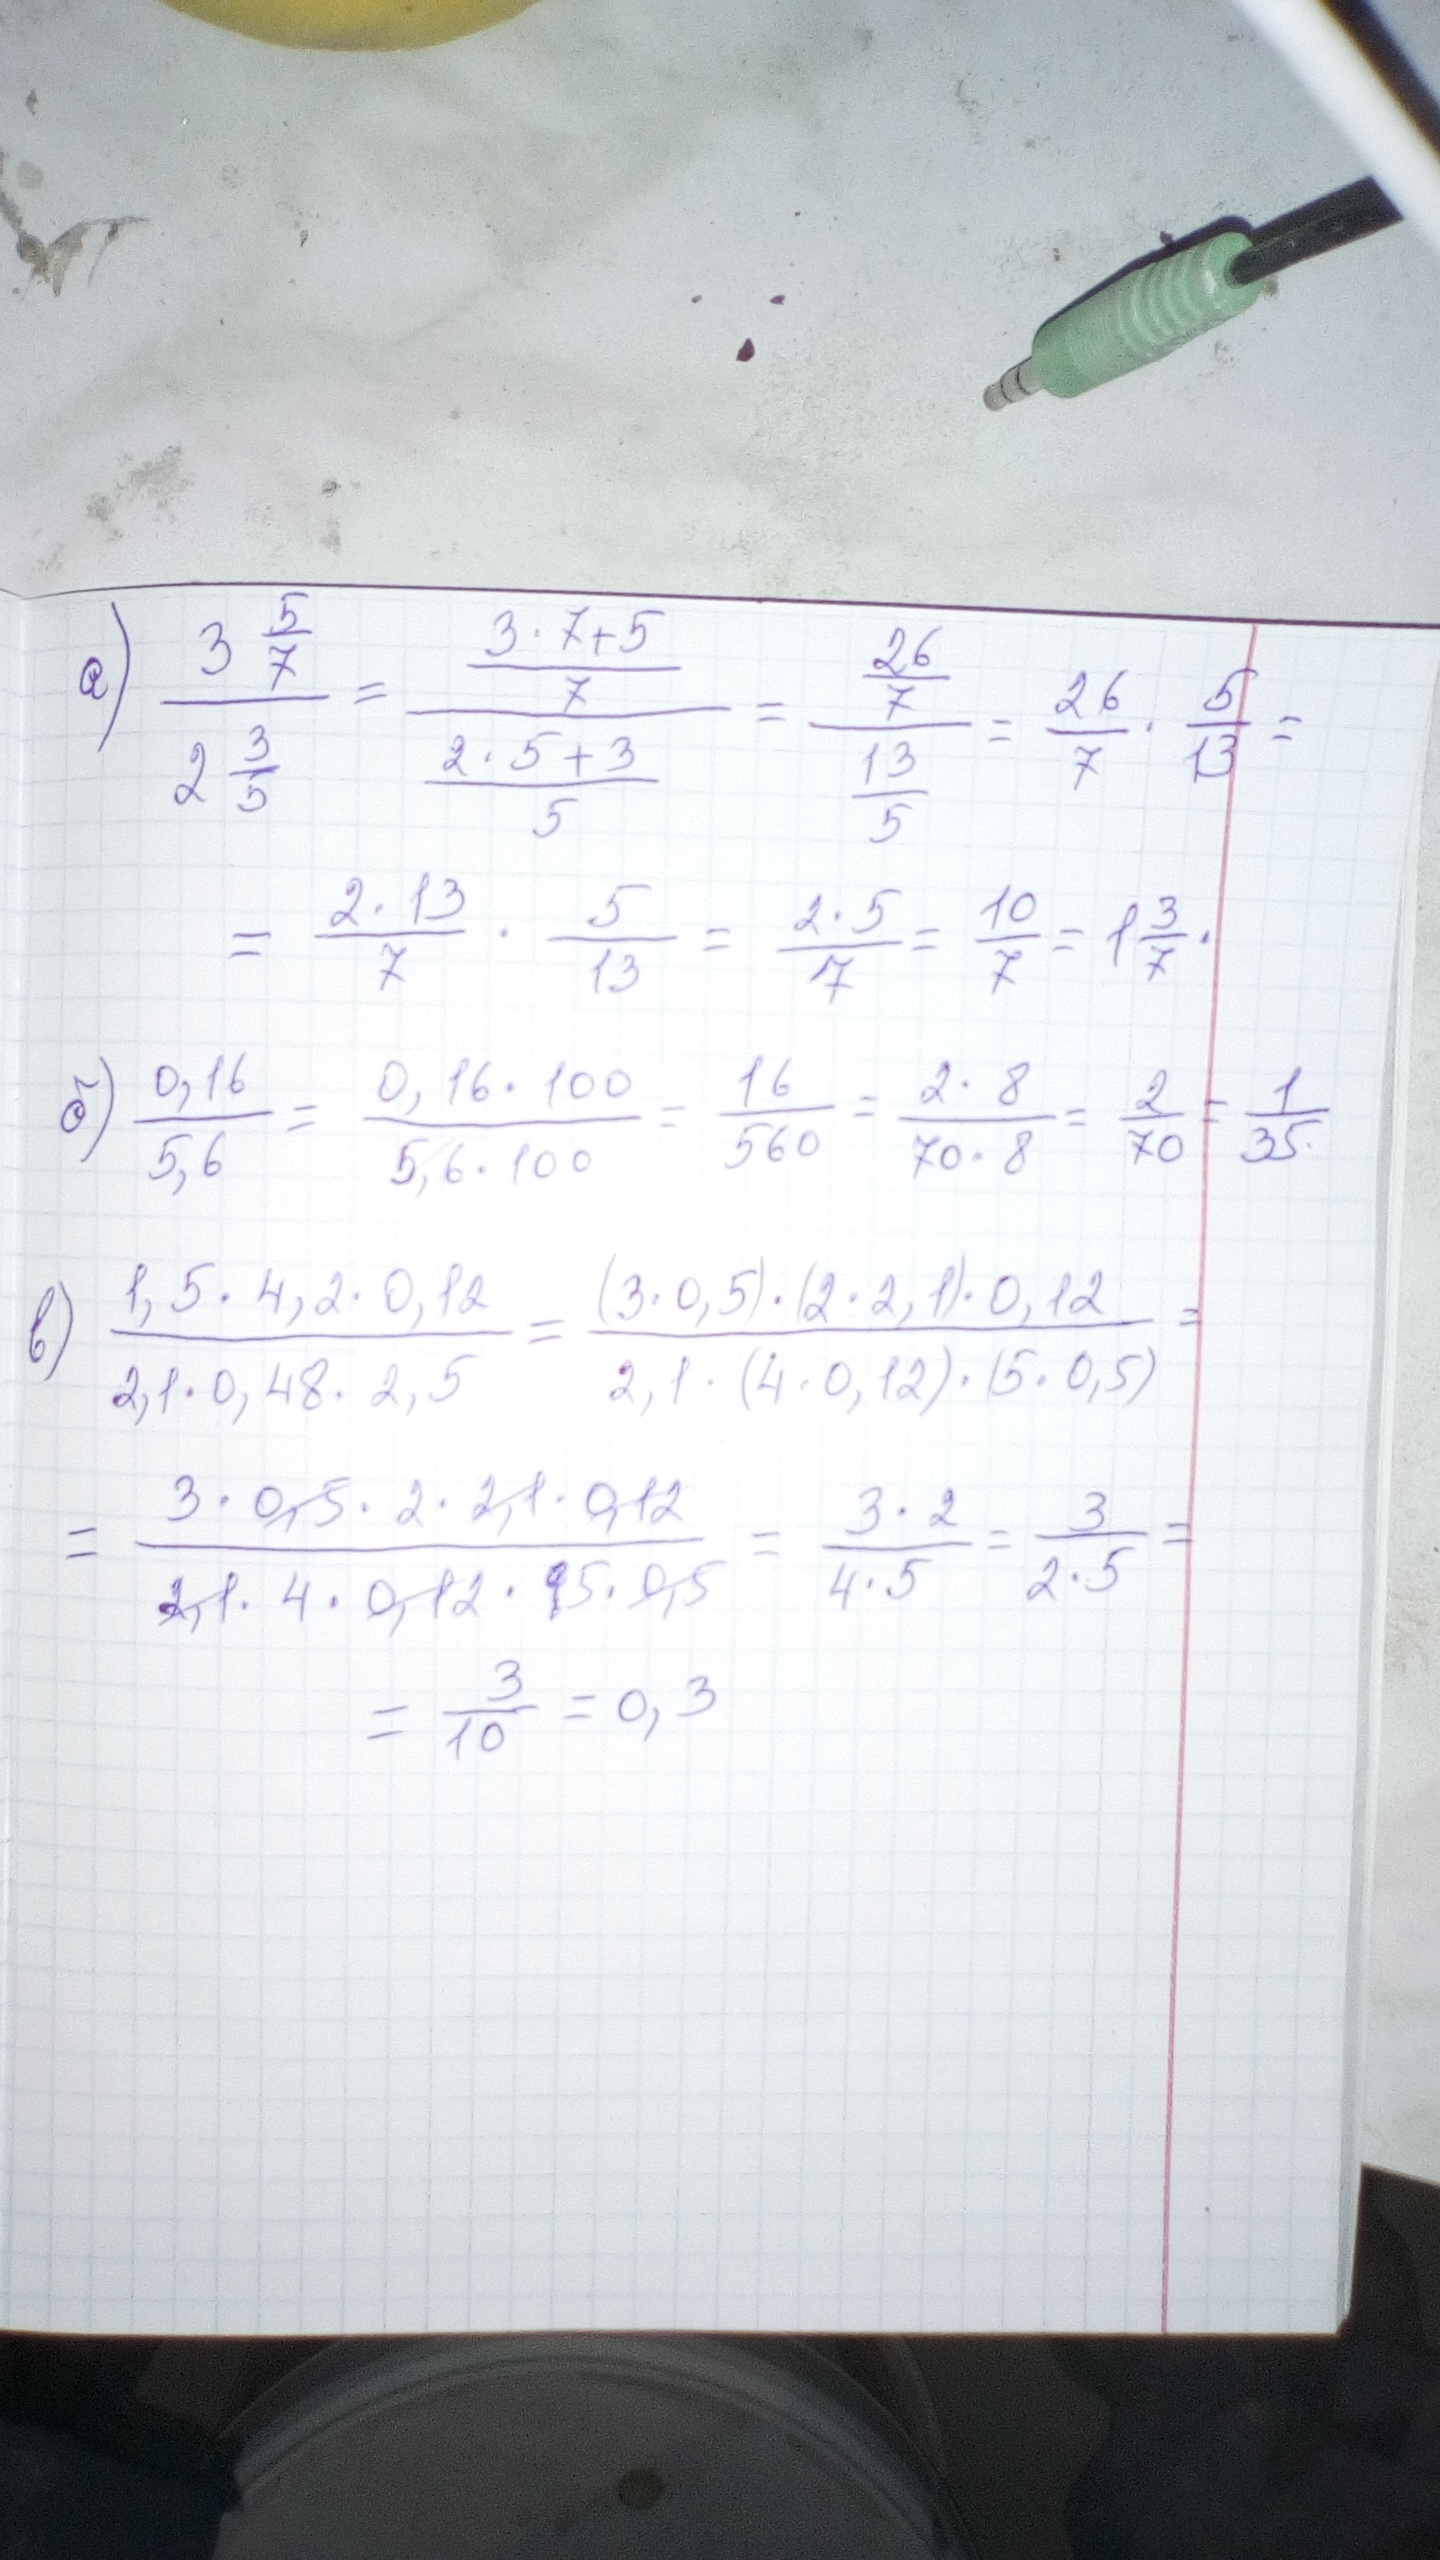 а) 3 5/7 / 2 3/5 = (3·7+5)/7 / (2·5+3)/5 = 26/7 / 13/5 = 26/7 · 5/13 =
= 2·13/7 · 5/13 = 2·5/7 = 10/7 = 1 3/7.
б) 0,16/5,6 = 0,16·100/5,6·100 = 16/560 = 2·8/70·8 = 2/70 = 1/35.
в) 1,5·4,2·0,12/2,1·0,48·2,5 = (3·0,5)·(2·2,1)·0,12/2,1·(4·0,12)·(5·0,5) =
= 3·0,5·2·2,1·0,12/2,1·4·0,12·5·0,5 = 3·2/4·5 = 3/2·5 =
= 3/10 = 0,3